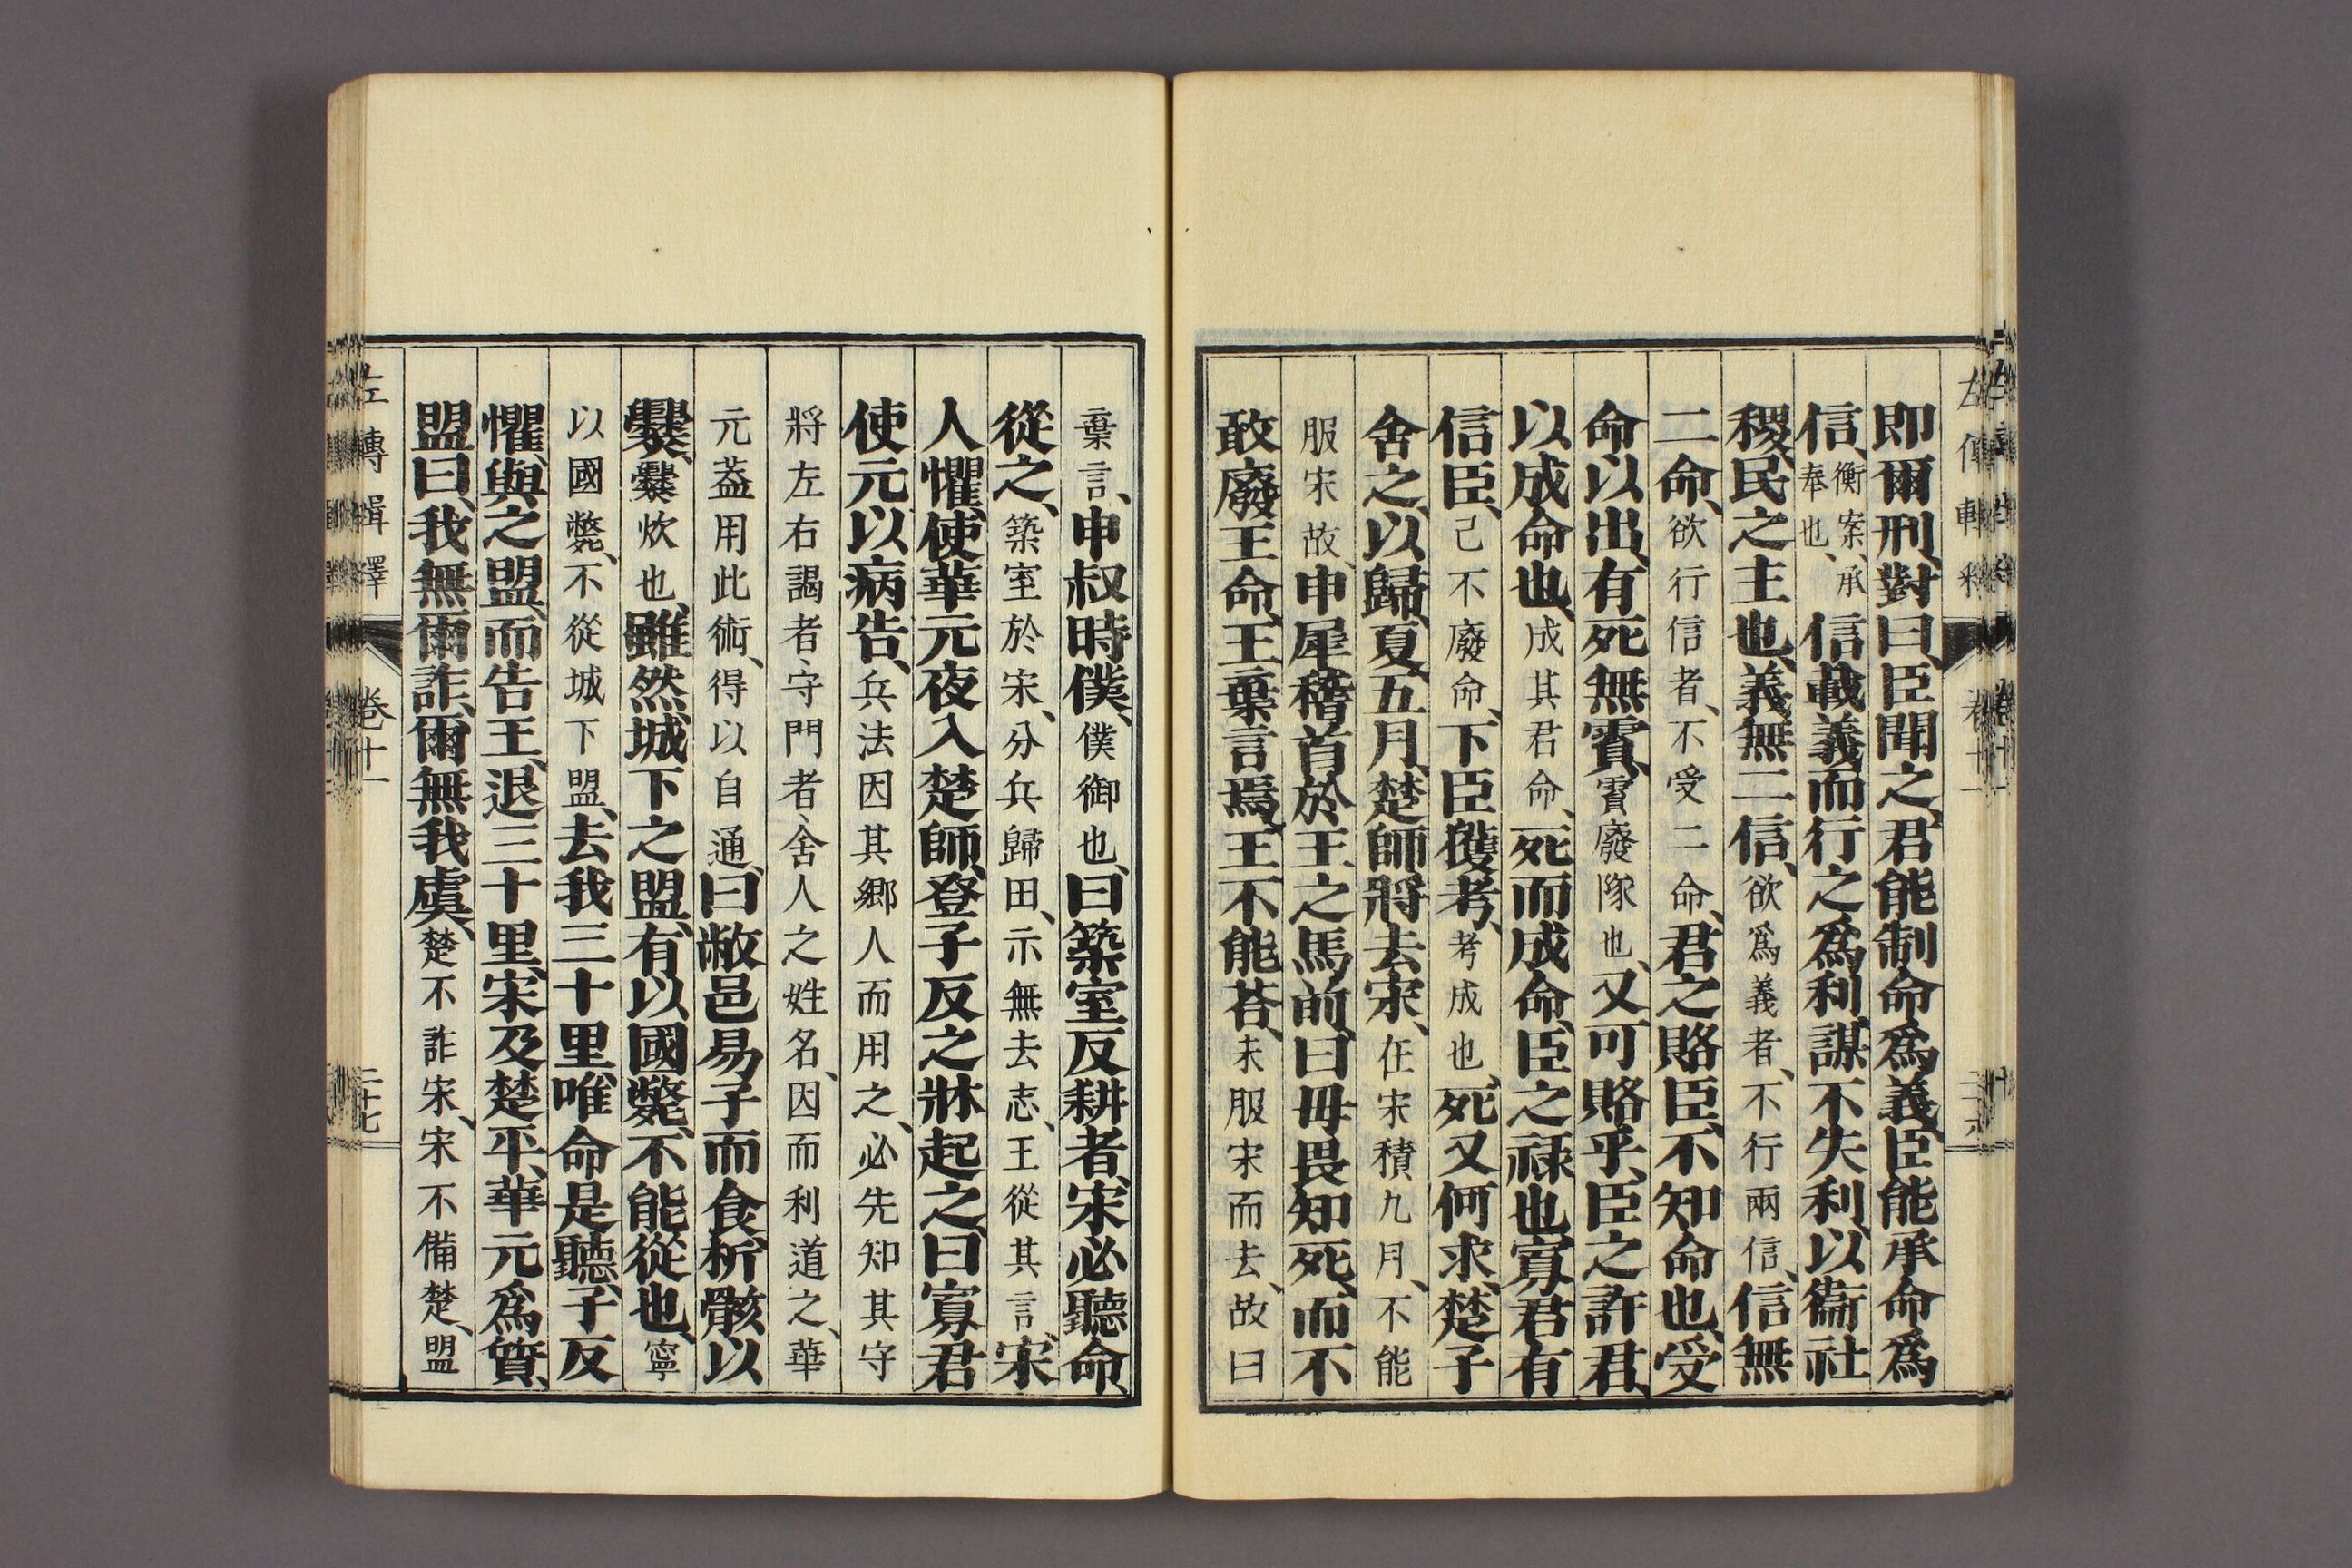 即爾刑、對曰、臣聞之、君能制命爲義、臣能承命爲
信、衡案、承奉也、信載義而行之爲利、謀不失利、以衞社
稷、民之主也、義無二信、欲爲義者、不行兩信、信無
二命、欲行信者、不受二命、君之賂臣、不知命也、受
命以出、有死無霣、霣廢隊也、又可賂乎、臣之許君、
以成命也、成其君命、死而成命、臣之祿也、寡君有
信臣、己不廢命、下臣獲考、考成也、死又何求、楚子
舍之、以歸、夏、五月、楚師將去宋、在宋積九月、不能
服宋故、申犀稽首於王之馬前、曰毋畏知死、而不
敢廢王命、王棄言焉、王不能荅、未服宋而去、故曰
棄言、申叔時僕、僕御也、曰築室反耕者、宋必聽命、
從之、築室於宋、分兵歸田、示無去志、王從其言、宋
人懼、使華元夜入楚師、登子反之牀、起之、曰寡君
使元以病告、兵法因其鄉人而用之、必先知其守
將左右謁者、守門者、舍人之姓名、因而利道之、華
元葢用此術、得以自通、曰敝邑易子而食、析骸以
爨、爨炊也、雖然、城下之盟、有以國斃、不能從也、寧
以國斃、不從城下盟、去我三十里、唯命是聽、子反
懼、與之盟、而告王、退三十里、宋及楚平、華元爲質、
盟曰、我無爾詐、爾無我虞、楚不詐宋、宋不備楚、盟
左傳輯釋 卷十一 二十七